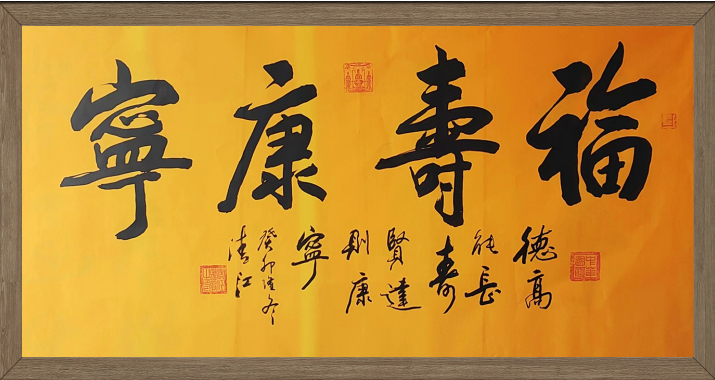 福壽康寧
德高
能長
壽
賢達
則康
寧
癸卯隆冬
清江